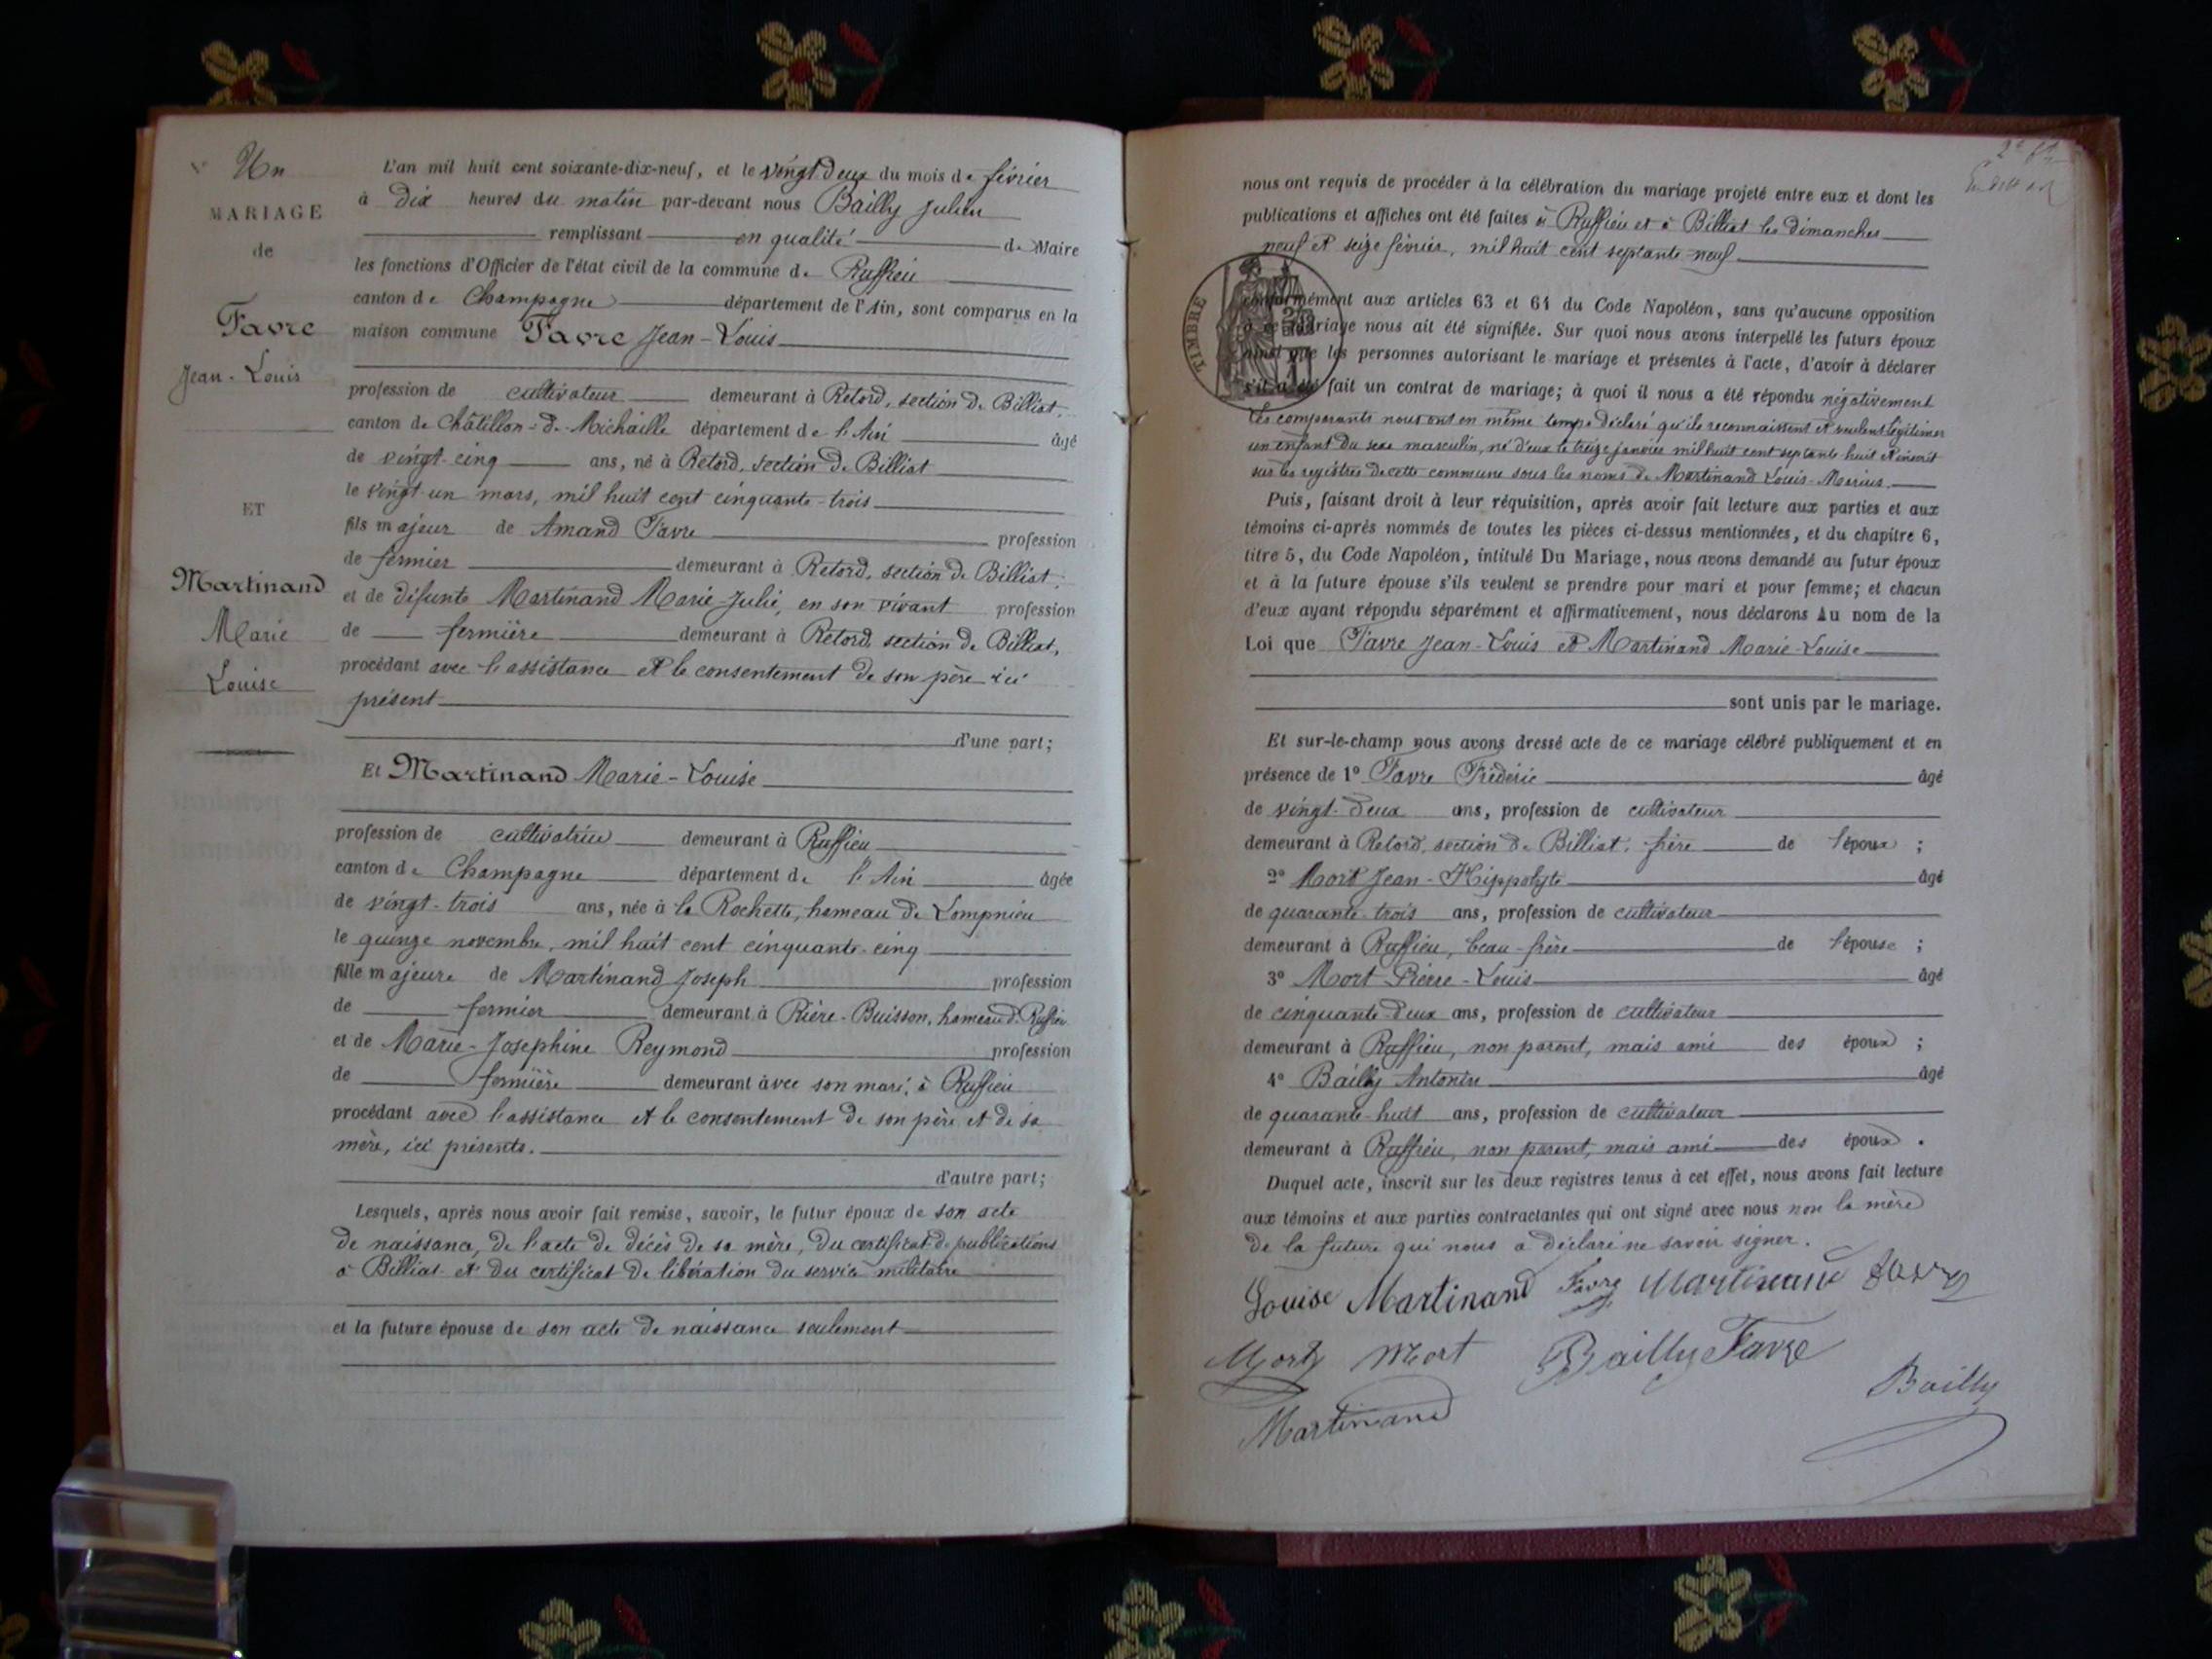 Un
MARIAGE
de
Favre
Jean-Louis
ET
Martinand
Marie
Louise
L'an mil huit cent soixante-dix-neuf, et le vingt-deux du mois de février
à dix heures du matin par-devant nous Bailly Julien
remplissant en qualité de Maire
les fonctions d'Officier de l'état civil de la commune de Ruffieu
canton de Champagne département de l'Ain, sont comparus en la
maison commune Favre Jean-Louis
profession de cultivateur demeurant à Retord, section de Billiat,
canton de Châtillon-de-Michaille département de l'Ain âgé
de vingt-cinq ans, né à Retord, section de Billiat
le vingt-un mars, mil huit cent cinquante-trois
fils majeur de Amand Favre profession
de fermier demeurant à Retord, section de Billiat;
et de défunte Martinand Marie-Julie, en son vivant profession
de fermière demeurant à Retord, section de Billiat,
procédant avec l'assistance et le consentement de son père ici
présent
d'une part;
Et Martinand Marie-Louise
profession de cultivatrice demeurant à Ruffieu
canton de Champagne département de l'Ain âgée
de vingt-trois ans, née à la Rochette, hameau de Lompnieu
le quinze novembre, mil huit cent cinquante-cinq
fille majeure de Martinand Joseph profession
de fermier demeurant à Rière-Buisson, hameau d. Ruffieu
et de Marie-Josephine Reymond profession
de fermière demeurant avec son mari, à Ruffieu
procédant avec l'assistance et le consentement de son père et de sa
mère, ici présents.
d'autre part;
Lesquels, après nous avoir fait remise, savoir, le futur époux de son acte
de naissance, de l'acte de décès de sa mère, du certificat de publications
à Billiat et du certificat de libération du service militaire
et la future épouse de son acte de naissance seulement
nous ont requis de procéder à la célébration du mariage projeté entre eux et dont les
publications et affiches ont été faites à Ruffieu et à Billiat les dimanches
neuf et seize février, mil huit cent septante-neuf
TIMBRE
conformément aux articles 63 et 64 du Code Napoléon, sans qu'aucune opposition
à ce mariage nous ait été signifiée. Sur quoi nous avons interpellé les futurs époux
ainsi que les personnes autorisant le mariage et présentes à l'acte, d'avoir à déclarer
s'il a été fait un contrat de mariage; à quoi il nous a été répondu négativement
Les comparants nous ont en même temps déclaré qu'ils reconnaissent et veulent légitimer
un enfant du sexe masculin, né d'eux le treize janvier mil huit cent septante-huit et inscrit
sur les registres de cette commune sous les noms de Martinand Louis-Marius.
Puis, faisant droit à leur réquisition, après avoir fait lecture aux parties et aux
témoins ci-après nommés de toutes les pièces ci-dessus mentionnées, et du chapitre 6,
titre 5, du Code Napoléon, intitulé Du Mariage, nous avons demandé au futur époux
et à la future épouse s'ils veulent se prendre pour mari et pour femme; et chacun
d'eux ayant répondu séparément et affirmativement, nous déclarons Au nom de la
Loi que Favre Jean-Louis et Martinand Marie-Louise
sont unis par le mariage.
Et sur-le-champ nous avons dressé acte de ce mariage célébré publiquement et en
présence de 1° Favre Frédéric âgé
de vingt-deux ans, profession de cultivateur
demeurant à Retord, section de Billiat, frère de l'époux ;
2° Mort Jean-Hippolyte âgé
de quarante-trois ans, profession de cultivateur
demeurant à Ruffieu, beau-frère de l'épouse ;
3° Mort Pierre-Louis âgé
de cinquante-deux ans, profession de cultivateur
demeurant à Ruffieu, non parent, mais ami des époux ;
4° Bailly Antonin âgé
de quarante-huit ans, profession de cultivateur
demeurant à Ruffieu, non parent, mais ami des époux .
Duquel acte, inscrit sur les deux registres tenus à cet effet, nous avons fait lecture
aux témoins et aux parties contractantes qui ont signé avec nous non la mère
de la future qui nous a déclaré ne savoir signer.
Louise Martinand Favre Martinand Favre
Mort Mort Bailly Favre
Bailly
Martinand